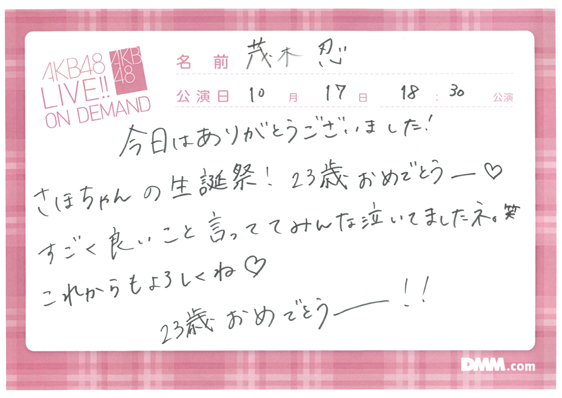 AKB48
LIVE!!
ON DEMAND
AKB
48
名前 茂木忍
公演日 10月 17日 18:30 公演
今日はありがとうございました!
さほちゃんの生誕祭! 23歳おめでとうー♡
すごく良いこと言っててみんな泣いてましたネ。笑
これからもよろしくね♡
23歳おめでとうー!!
DMM.com